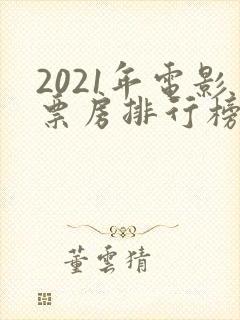 2021年電影
票房排行榜
董雲猜